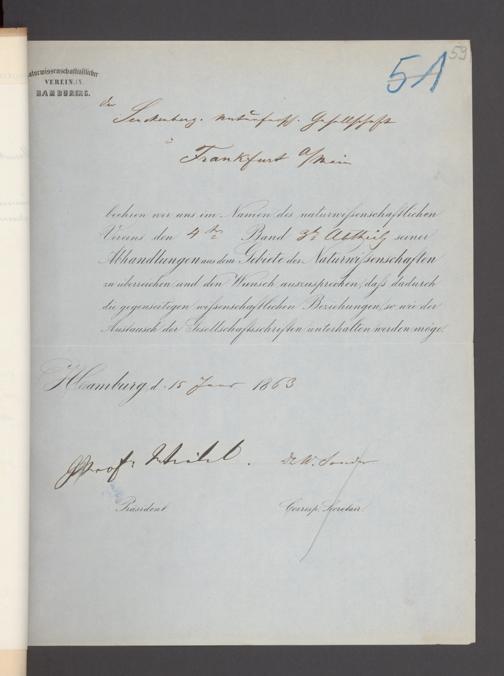 Naturwissenschaftlicher
VEREIN IN
HAMBURG.
51
59
der
Senckenberg. naturforsch. Gesellschaft
Frankfurt a/Main
beehren wir uns im Namen des naturwissenschaftlichen
Vereins den 4te Band 3te Abtheilg seiner
Abhandlungen aus dem Gebiete der Naturwissenschaften
zu überreichen und den Wunsch auszusprechen, dass dadurch
die gegenseitigen wissenschaftlichen Beziehungen, so wie der
Austausch der Gesellschaftsschriften unterhalten werden möge.
Hamburg, d. 15 1863
Prof.
Dr W. Sonder
Präsident
Corresp. Secretair.